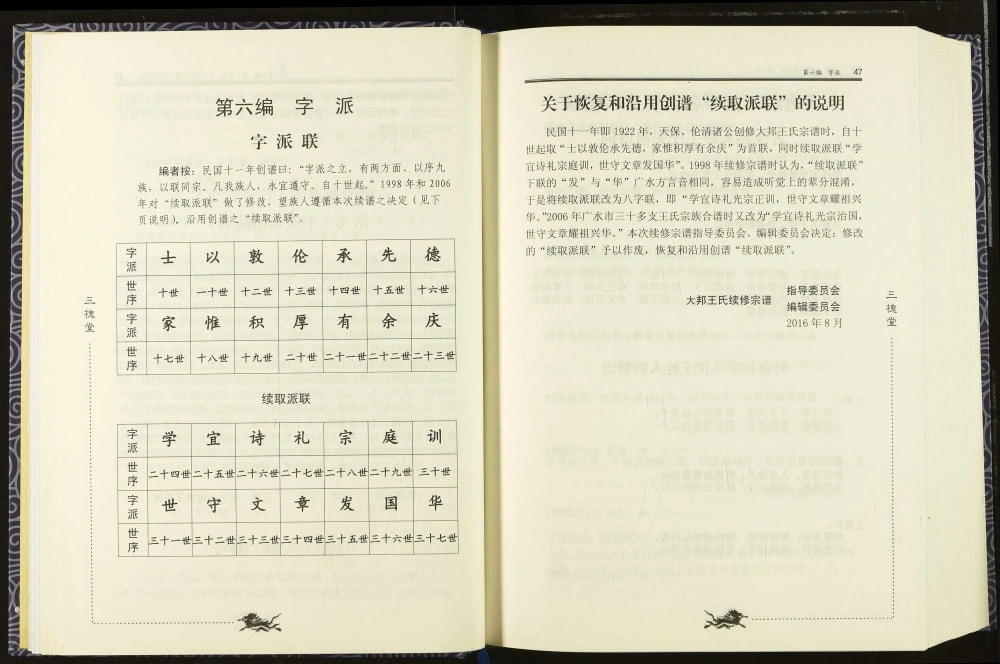 第六编 字 派
字 派 联
编者按：民国十一年创谱曰：“字派之立，有两方面。以序九
族，以联同宗。凡我族人，永宜遵守。自十世起。”1998 年和 2006
年对“续取派联”做了修改，望族人遵循本次续谱之决定（见下
页说明）。沿用创谱之“续取派联”。
字派 士 以 敦 伦 承 先 德
世序 十世 一十世 十二世 十三世 十四世 十五世 十六世
字派 家 惟 积 厚 有 余 庆
世序 十七世 十八世 十九世 二十世 二十一世 二十二世 二十三世
续取派联
字派 学 宜 诗 礼 宗 庭 训
世序 二十四世 二十五世 二十六世 二十七世 二十八世 二十九世 三十世
字派 世 守 文 章 发 国 华
世序 三十一世 三十二世 三十三世 三十四世 三十五世 三十六世 三十七世
三槐堂
第六编 字派 47
关于恢复和沿用创谱“续取派联”的说明
民国十一年即 1922 年，天保、伦清诸公创修大邦王氏宗谱时，自十
世起取“士以敦伦承先德，家惟积厚有余庆”为首联，同时续取派联“学
宜诗礼宗庭训，世守文章发国华”。1998 年续修宗谱时认为，“续取派联”
下联的“发”与“华”广水方言音相同，容易造成听觉上的辈分混淆，
于是将续取派联改为八字联，即“学宜诗礼光宗正训，世守文章耀祖兴
华。”2006 年广水市三十多支王氏宗族合谱时又改为“学宜诗礼光宗治国，
世守文章耀祖兴华。”本次续修宗谱指导委员会、编辑委员会决定：修改
的“续取派联”予以作废，恢复和沿用创谱“续取派联”。
大邦王氏续修宗谱 指导委员会
编辑委员会
2016 年 8 月
三槐堂